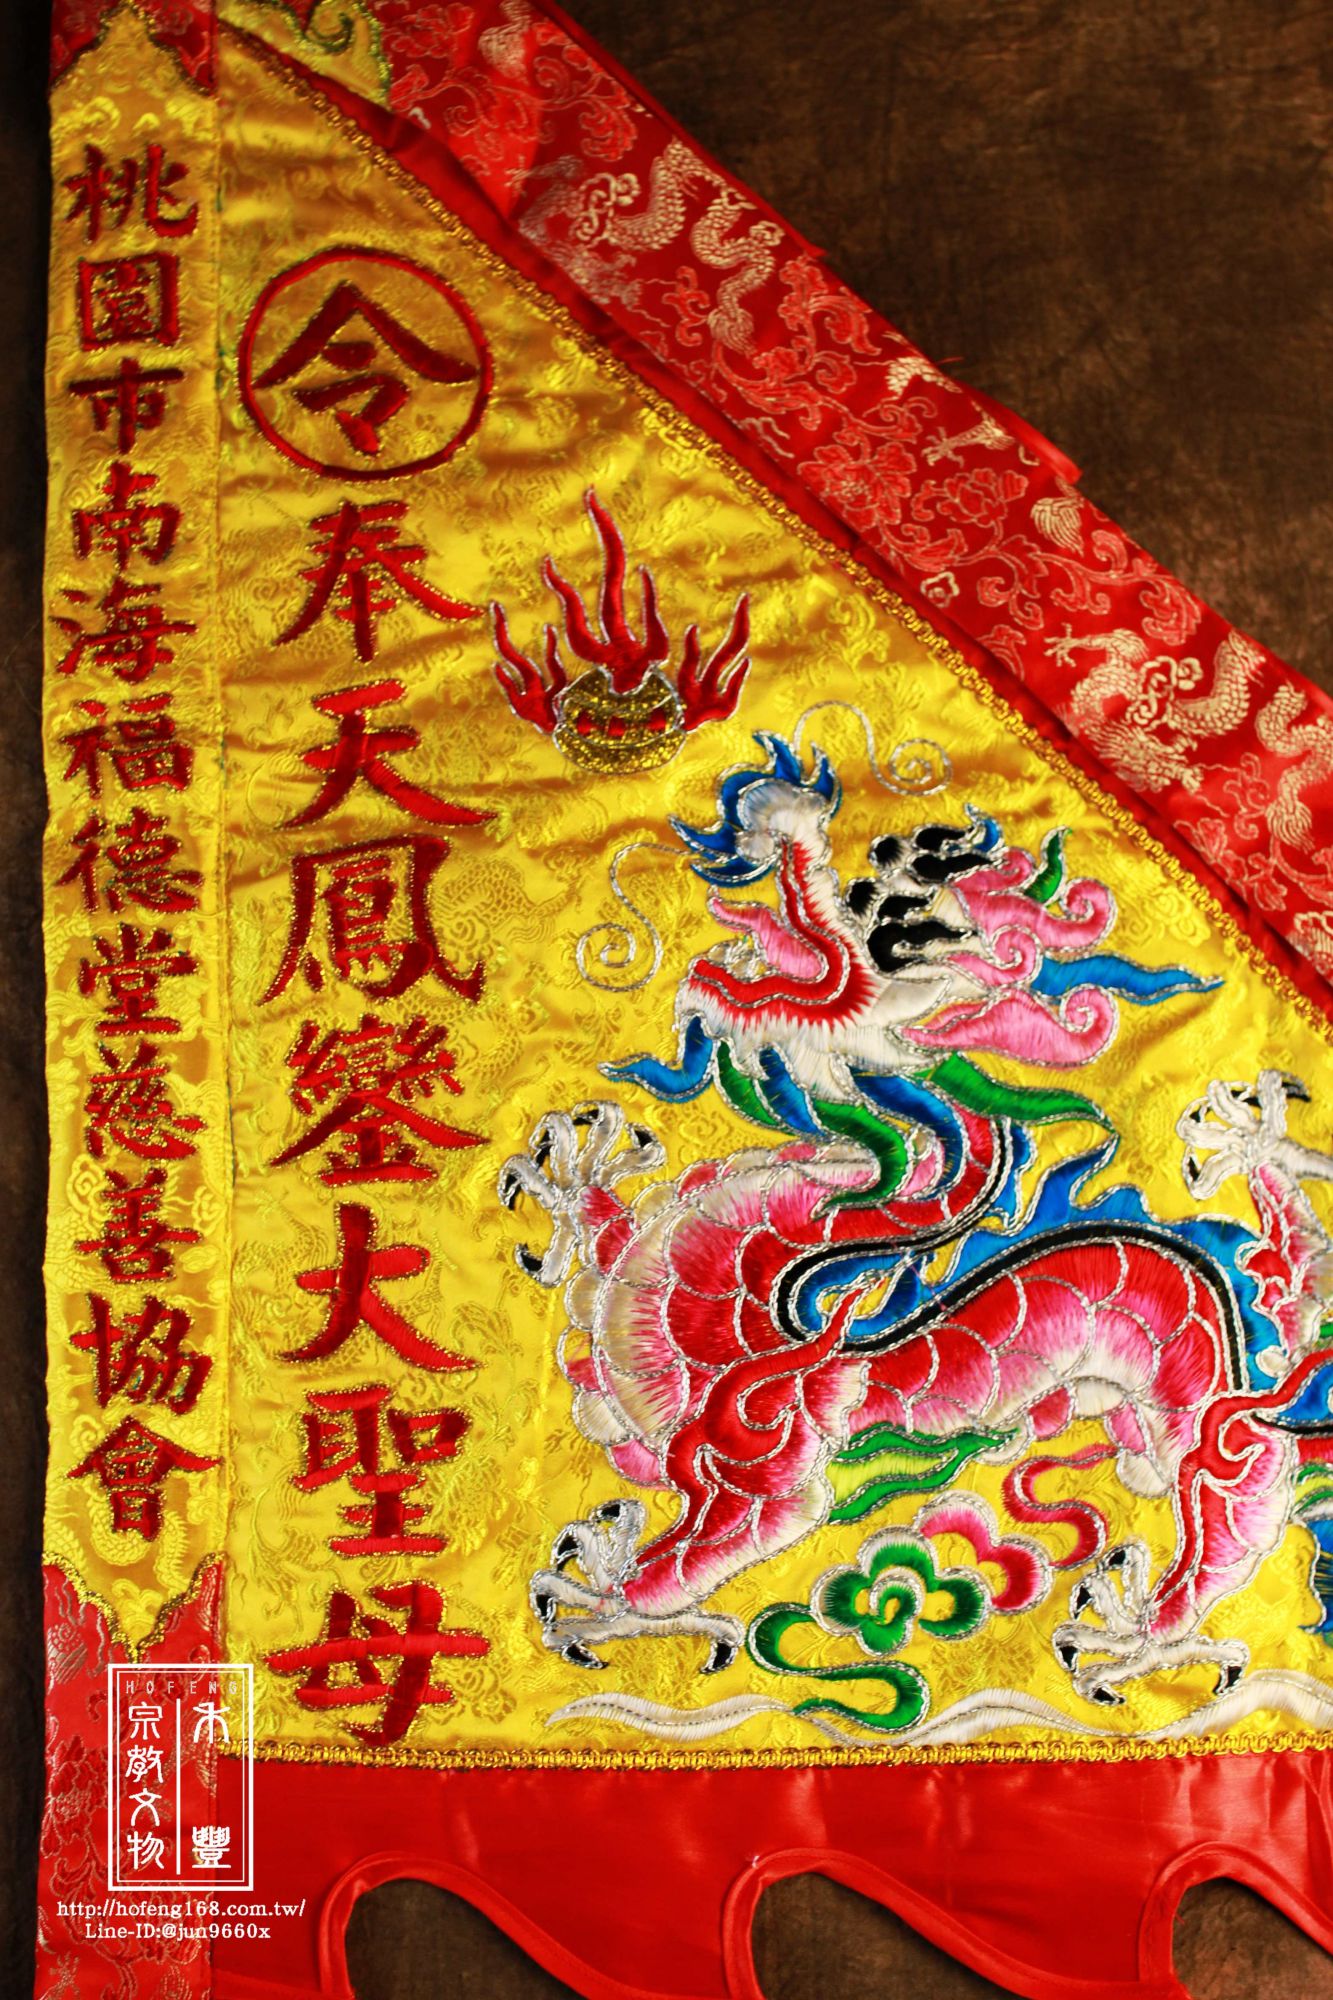 桃園市南海福德堂慈善協會
令
奉天鳳鑾大聖母
HOFENG
禾豐
宗教文物
http://hofeng168.com.tw/
Line-ID:@jun9660x